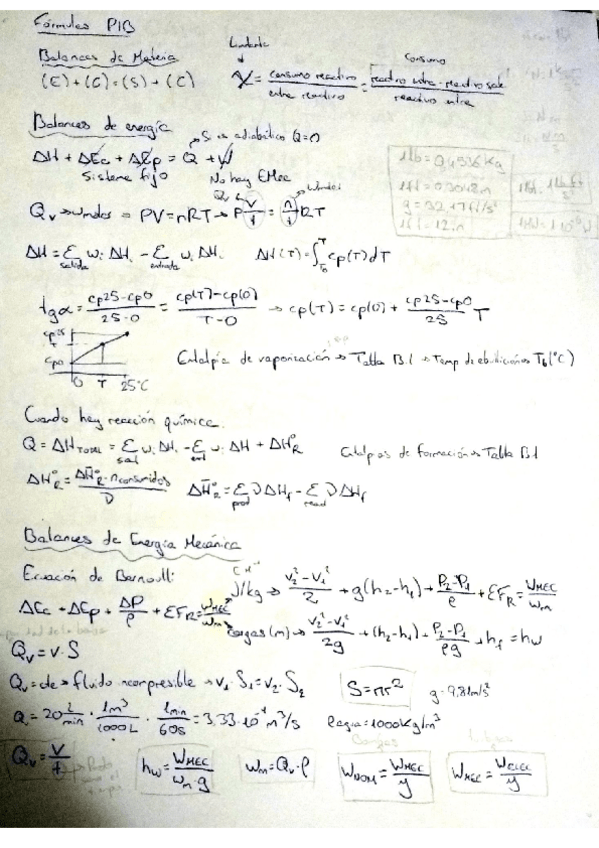 Fórmulas PIB
Balances de Materia
Limitante
Consumo
(E) + (G) = (S) + (C)
X = consumo reactivo / entra reactivo = reactivo entra - reactivo sale / reactivo entra
Balances de energía
Si es adiabático Q=0
ΔH + ΔEc + ΔEp = Q + W
Sistema fijo
No hay EMec
1lb = 0,4536 kg
1ft = 0,3048m
g = 32,17 ft/s²
1ft = 12 in
Qv → Wmolar → PV = nRT → P V/t = n/t RT
ΔH = Σ salida wi ΔHi - Σ entrada wi ΔHi
ΔH(T) = ∫ T0 T cp(T) dT
tg α = cp25 - cp0 / 25 - 0 = cp(T) - cp(0) / T - 0 → cp(T) = cp(0) + cp25 - cp0 / 25 T
cp25
cp0
0 T 25°C
Entalpía de vaporización → Tabla B.1 → Temp de ebullición → Tb (°C)
Cuando hay reacción química.
Q = ΔH TOTAL = Σ sal wi ΔHi - Σ ent wi ΔH + ΔH°R
Entalpías de formación → Tabla B.1
ΔH°R = ΔH̄°R · n consumidos / ν
ΔH̄°R = Σ prod ν ΔHf - Σ reac ν ΔHf
Balances de Energía Mecánica
Ecuación de Bernoulli:
J/kg → v2² - v1² / 2 + g(h2 - h1) + P2 - P1 / ρ + ΣFR = WMEC / wm
ΔEc + ΔEp + ΔP / ρ + ΣFR = WMEC / wm
Cargas (m) → v2² - v1² / 2g + (h2 - h1) + P2 - P1 / ρg + hf = hw
Qv = v · S
Qv = cte → fluido incompresible → v1 · S1 = v2 · S2
S = πr²
g = 9,81 m/s²
Q = 20 L/min · 1m³ / 1000L · 1min / 60s = 3,33·10⁻⁴ m³/s
ρagua = 1000 kg/m³
Qv = V / t
hw = WMEC / wm · g
wm = Qv · ρ
Bombas
WNOM = WMEC / y
WMEC = WELEC / y